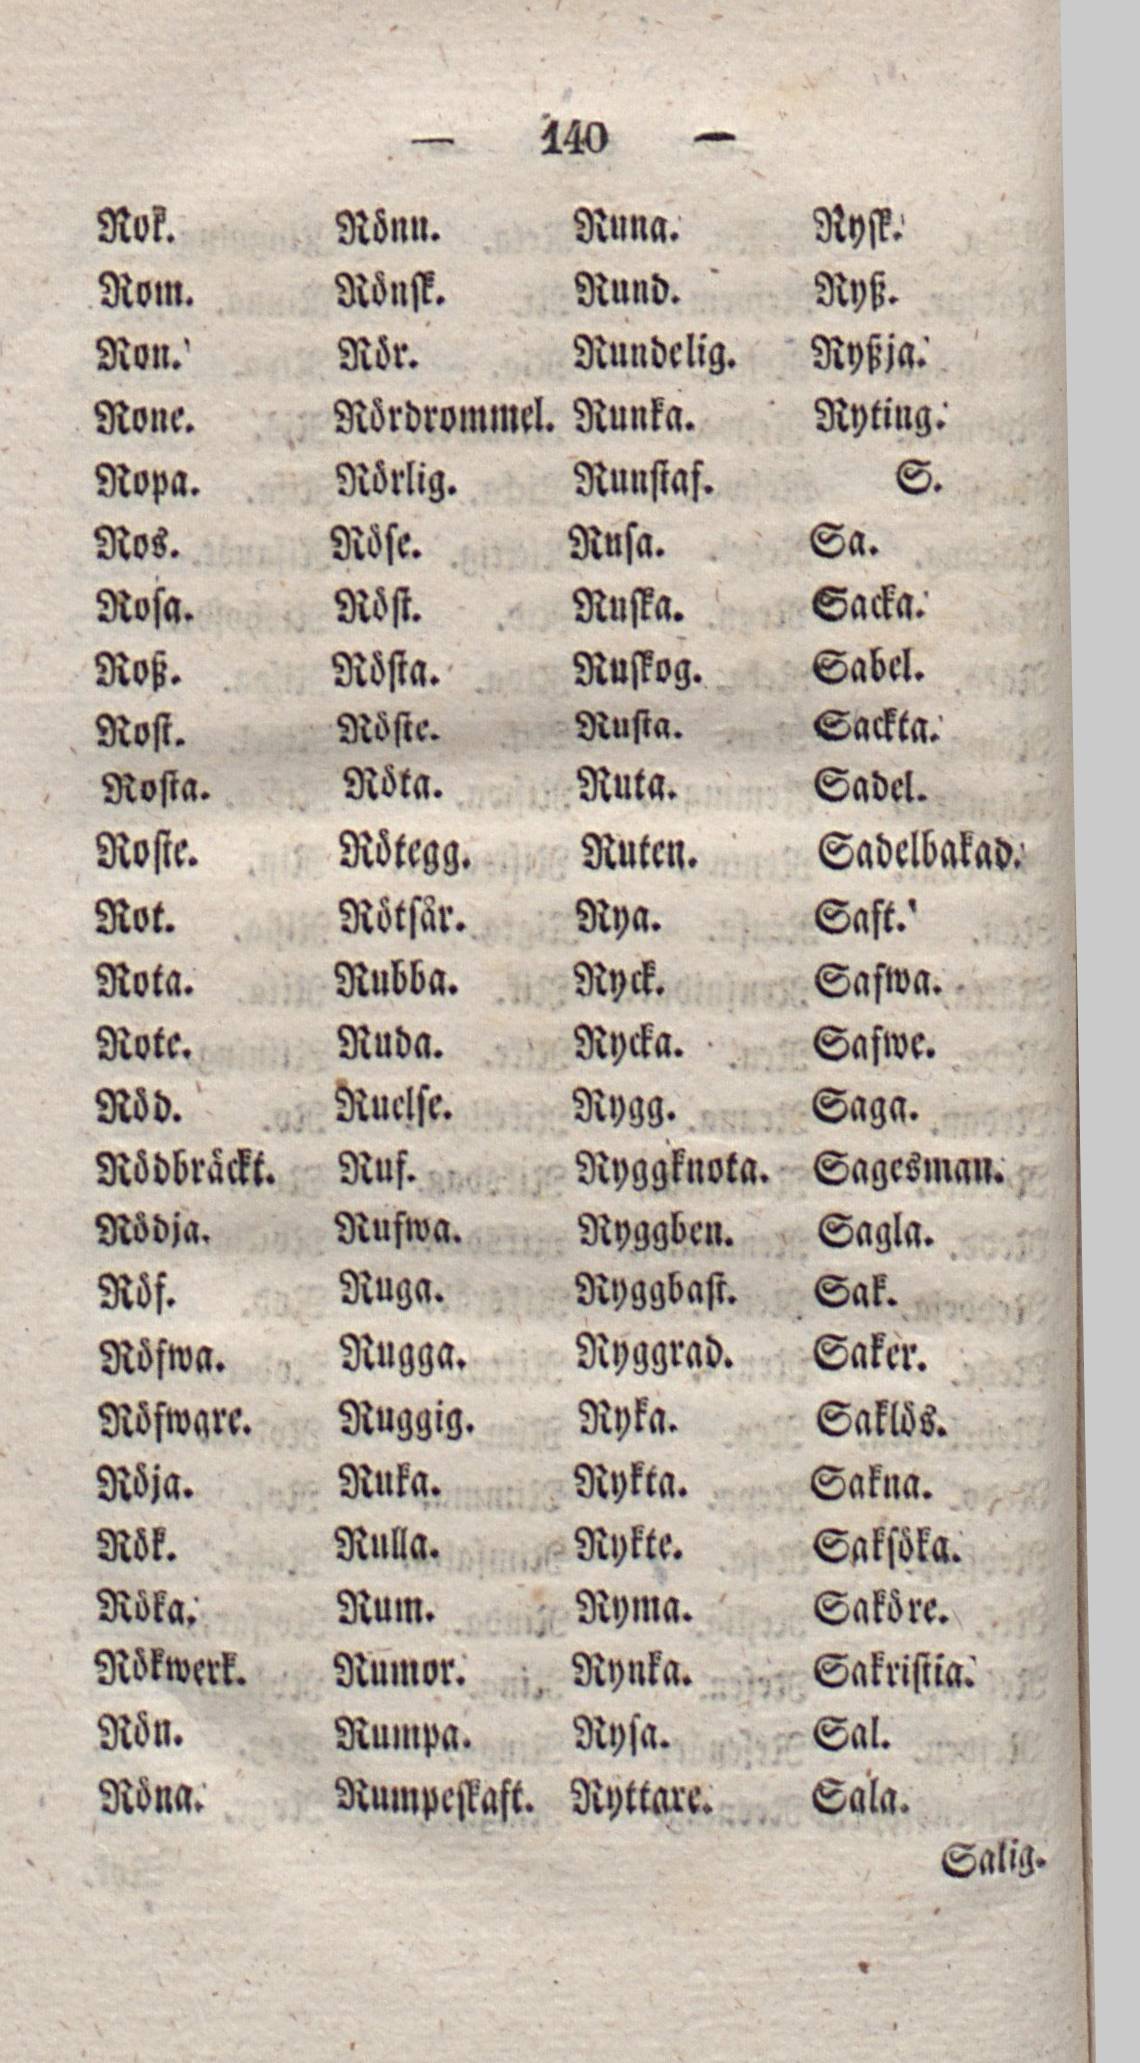 — 140 —
Rok.
Rom.
Ron.
Rone.
Ropa.
Ros.
Roſa.
Roß.
Roſt.
Roſta.
Roſte.
Rot.
Rota.
Rote.
Röd.
Rödbräckt.
Rödja.
Röf.
Röfwa.
Röfware.
Röja.
Rök.
Röka.
Rökwerk.
Rön.
Röna.
Rönn.
Rönſk.
Rör.
Rördrommel.
Rörlig.
Röſe.
Röſt.
Röſta.
Röſte.
Röta.
Rötegg.
Rötſår.
Rubba.
Ruda.
Ruelſe.
Ruf.
Rufwa.
Ruga.
Rugga.
Ruggig.
Ruka.
Rulla.
Rum.
Rumor.
Rumpa.
Rumpeſkaft.
Runa.
Rund.
Rundelig.
Runka.
Runſtaf.
Ruſa.
Ruſka.
Ruſkog.
Ruſta.
Ruta.
Ruten.
Rya.
Ryck.
Rycka.
Rygg.
Ryggknota.
Ryggben.
Ryggbaſt.
Ryggrad.
Ryka.
Rykta.
Rykte.
Ryma.
Rynka.
Ryſa.
Ryttare.
Ryſk.
Ryß.
Ryßja.
Ryting.
S.
Sa.
Sacka.
Sabel.
Sackta.
Sadel.
Sadelbakad.
Saft.
Safwa.
Safwe.
Saga.
Sagesman.
Sagla.
Sak.
Saker.
Saklös.
Sakna.
Sakſöka.
Saköre.
Sakriſtia.
Sal.
Sala.
Salig.